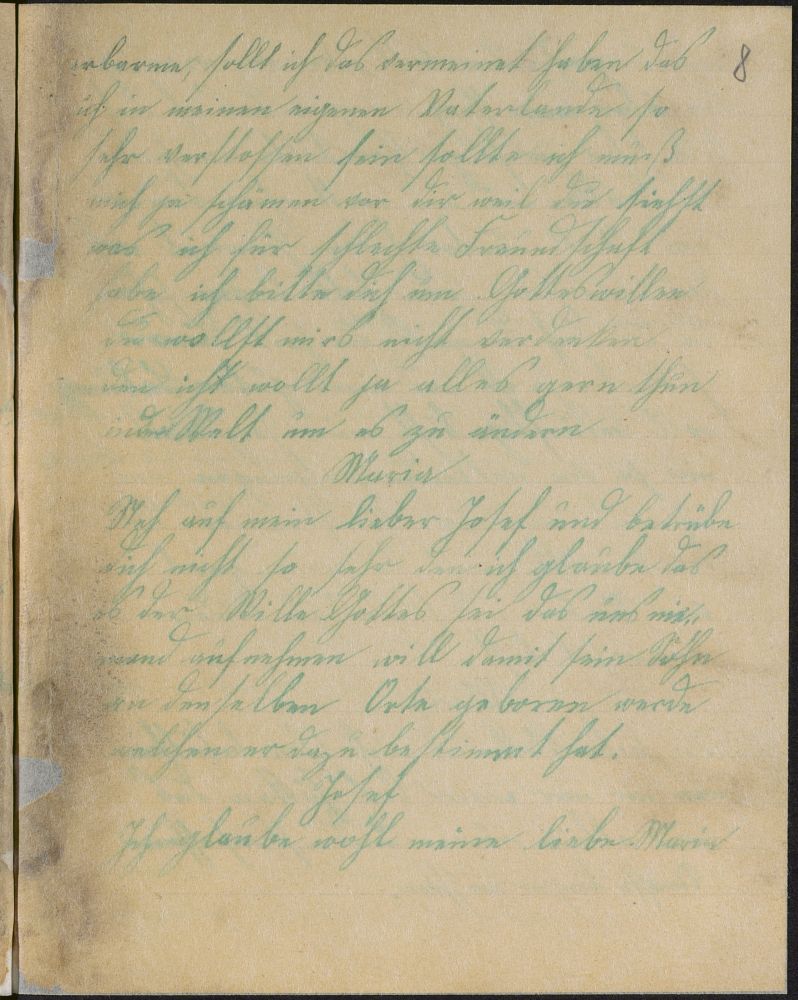 8
erbarme, sollt ich das vermeinet haben das
ich in meinen eigenen Vaterlande so
sehr verstossen sein sollte ich muß
mich ja schämen vor dir weil du siehst
was ich für schlechte Freundschaft
habe ich bitte dich um Gotteswillen
du wollst mirs nicht verdenken
den ich wollt ja alles gern thun
in der Welt um es zu ändern
Maria
Steh auf mein lieber Josef und betrübe
dich nicht so sehr den ich glaube das
es der Wille Gottes sei das uns nie-
mand aufnehmen will damit sein Sohn
an denselben Orte geboren werde
welchen er dazu bestimmt hat.
Josef
Ich glaube wohl meine liebe Maria